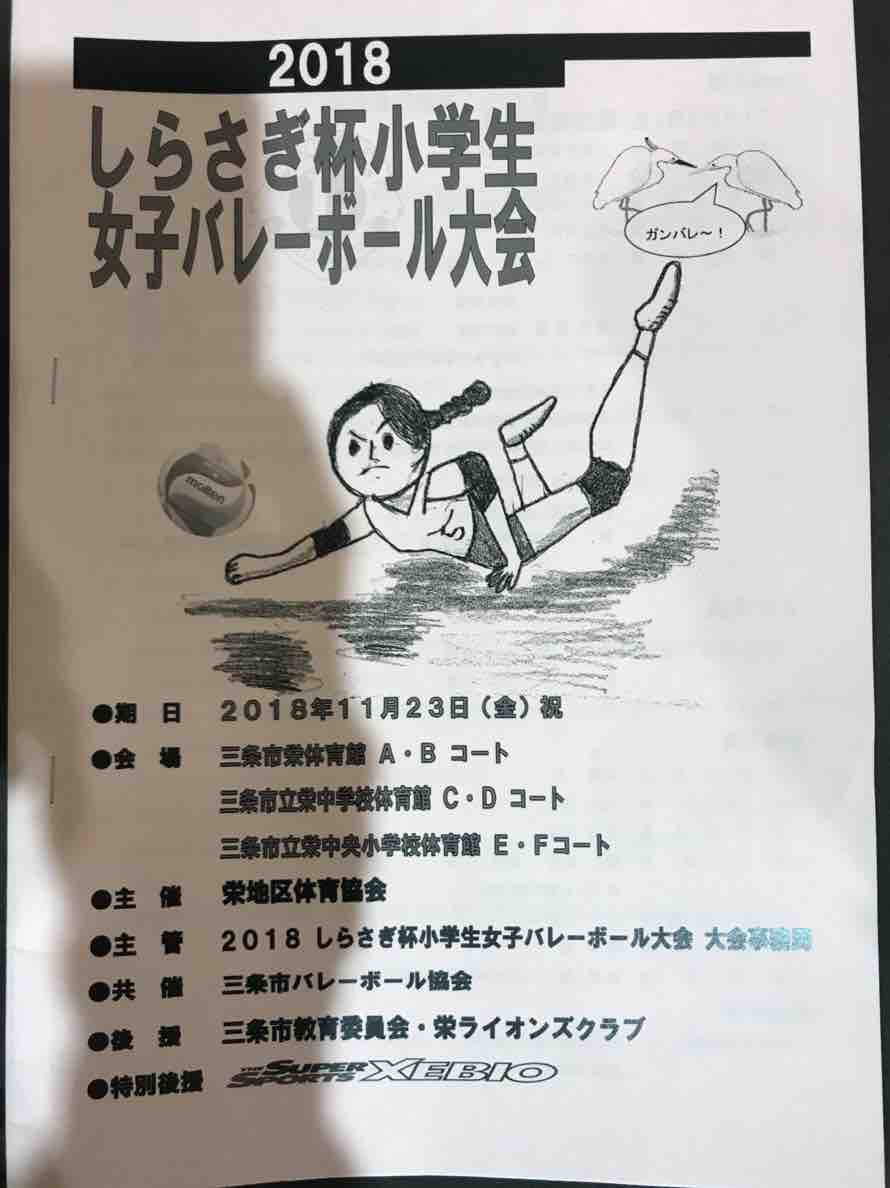 2018
しらさぎ杯小学生
女子バレーボール大会
ガンバレ～！
molten
●期　日　２０１８年１１月２３日（金）祝
●会　場　三条市栄体育館 Ａ・Ｂ コート
三条市立栄中学校体育館 Ｃ・Ｄ コート
三条市立栄中央小学校体育館 Ｅ・Ｆコート
●主　催　栄地区体育協会
●主　管　２０１８ しらさぎ杯小学生女子バレーボール大会 大会事務局
●共　催　三条市バレーボール協会
●後　援　三条市教育委員会・栄ライオンズクラブ
●特別後援　THE SUPER SPORTS XEBIO